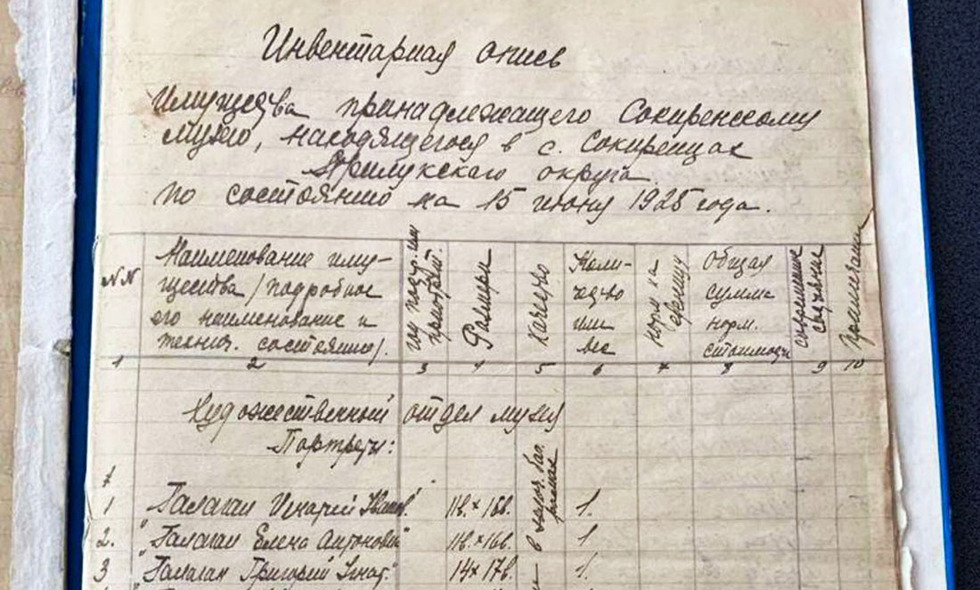 Инвентарная опись
Имущества принадлежащего Сокиренскому
музею, находящегося в с. Сокиренцах
Прилукского округа
по состоянию на 15 июня 1925 года.
№№
Наименование иму-
щества /подробное
его наименование и
технич. состояние/.
год постр. или
приобрет.
Размеры
Качество
Коли-
чество
или
вес
норм. ка
единицу
Общая
сумма
норм.
стоимости
современное
Примечания
1 2 3 4 5 6 7 8 9 10
Художественный отдел музея
Портреты:
1 "Галаган Игнатий Иванов." 11в.×15в. 1.
2. "Галаган Елена Антоновн" 11в.×16в. 1
3 "Галаган Григорий Игнат." 14×17в. 1.
в зол. баг.
рамах